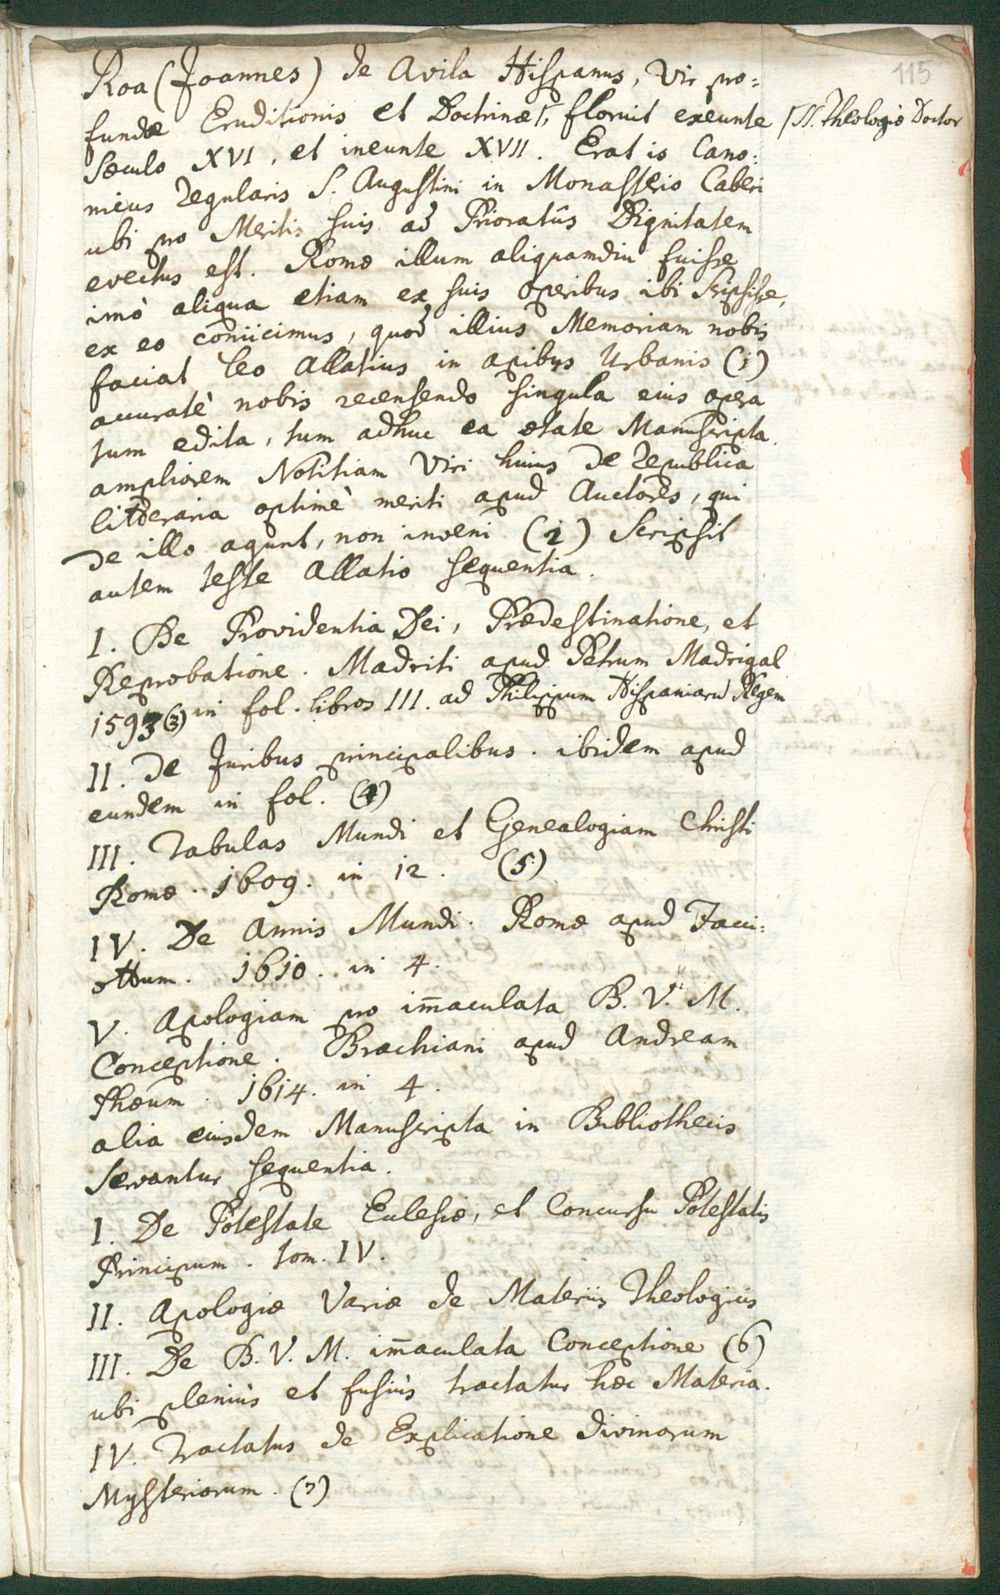 115
Roa (Joannes) de Avila Hispanus, Vir pro=
fundæ Eruditionis et Doctrinæ, floruit exeunte
SS. Theologiæ Doctor
Sæculo XVI, et ineunte XVII. Erat is Cano:
nicus regularis S. Augustini in Monasterio Caberi
ubi pro Meritis suis ad Prioratûs Dignitatem
evectus est. Romæ illum aliquamdiu fuisse
imò aliqua etiam ex suis operibus ibi scripsisse,
ex eo coniicimus, quod illius Memoriam nobis
faciat Leo Allatius in apibus Urbanis (1)
accuratè nobis recensendo singula eius opera
tum edita, tum adhuc ea ætate Manuscripta.
ampliorem Notitiam Viri huius de republica
litteraria optimè meriti apud Auctores, qui
de illo agunt, non inveni (2) Scripsit
autem teste Allatio sequentia.
I. De Providentia Dei, Prædestinatione, et
Reprobatione. Madriti apud Petrum Madrigal
1593 (3) in fol. libros III. ad Philippum Hispaniarū Regem
II. De Juribus principalibus. ibidem apud
eundem in fol. (4)
III. Tabulas Mundi et Genealogiam Christi
Romæ. 1609. in 12. (5)
IV. De Annis Mundi. Romæ apud Facci:
ottum. 1610. in 4.
V. Apologiam pro im̄aculata B. V. M.
Conceptione. Brachiani apud Andream
Phæum. 1614. in 4.
alia eiusdem Manuscripta in Bibliothecis
servantur sequentia.
I. De Potestate Eclesiæ, et Concursu Potestatis
Principum. tom. IV.
II. Apologiæ Variæ de Materiis Theologicis
III. De B. V. M. im̄aculata Conceptione (6)
ubi pleniùs et fusiùs tractatur hæc Materia.
IV. Tractatus de Explicatione divinorum
Mysteriorum. (7)